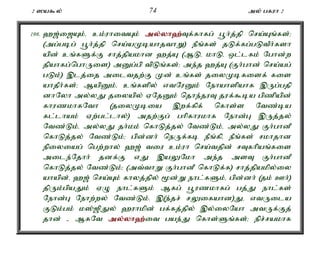 2 ஸயகூல் 74 அல் பகரா 2
196. ஹஜ்ஜையும், உம்ராவையும் அல்லாஹ்வுக்காகப் பூர்த்தி செய்யுங்கள்;
(அப்படிப் பூர்த்தி செய்யமுடியாதவாறு) நீங்கள் தடுக்கப்படுவீர்களா
யின் உங்களுக்கு சாத்தியமான ஹத்யு (ஆடு மாடு, ஒட்டகம் போன்ற
தியாகப்பொருளை) அனுப்பி விடுங்கள்; அந்த ஹத்யு (குர்பான் செய்யப்
படும்) இடத்தை அடைவதற்கு முன் உங்கள் தலைமுடிகளைக் களை
யாதீர்கள்; ஆயினும், உங்களில் எவரேனும் நோயாளியாக இருப்பதி
னாலோ அல்லது தலையில் ஏதேனும் தொந்தரவு தரக்கூடிய பிணியின்
காரணமாகவோ (தலைமுடியை இறக்கிக் கொள்ள வேண்டிய
கட்டாயம் ஏற்பட்டால்) அதற்குப் பரிகாரமாக நோன்பு இருத்தல்
வேண்டும், அல்லது தர்மம் கொடுத்தல் வேண்டும், அல்லது குர்பானி
கொடுத்தல் வேண்டும்; பின்னர் நெருக்கடி நீங்கி, நீங்கள் சமாதான
நிலையைப் பெற்றால் ஹஜ் வரை உம்ரா செய்வதின் சவுகரியங்களை
அடைந்தோர் தனக்கு எது இயலுமோ அந்த அளவு குர்பானீ
கொடுத்தல் வேண்டும்; (அவ்வாறு குர்பானீ கொடுக்க) சாத்தியமில்லை
யாயின், ஹஜ் செய்யும் காலத்தில் மூன்று நாட்களும், பின்னர் (தம் ஊர்)
திரும்பியதும் ஏழு நாட்களும் ஆகப் பூரணமாகப் பத்து நாட்கள்
நோன்பு நோற்றல் வேண்டும். இ(ந்தச் சலுகையான)து, எவருடைய
குடும்பம் மஸ்ஜிதுல் ஹராமின் பக்கத்தில் இல்லையோ அவருக்குத்
தான் - ஆகவே அல்லாஹ்வை பயந்து கொள்ளுங்கள்; நிச்சயமாக